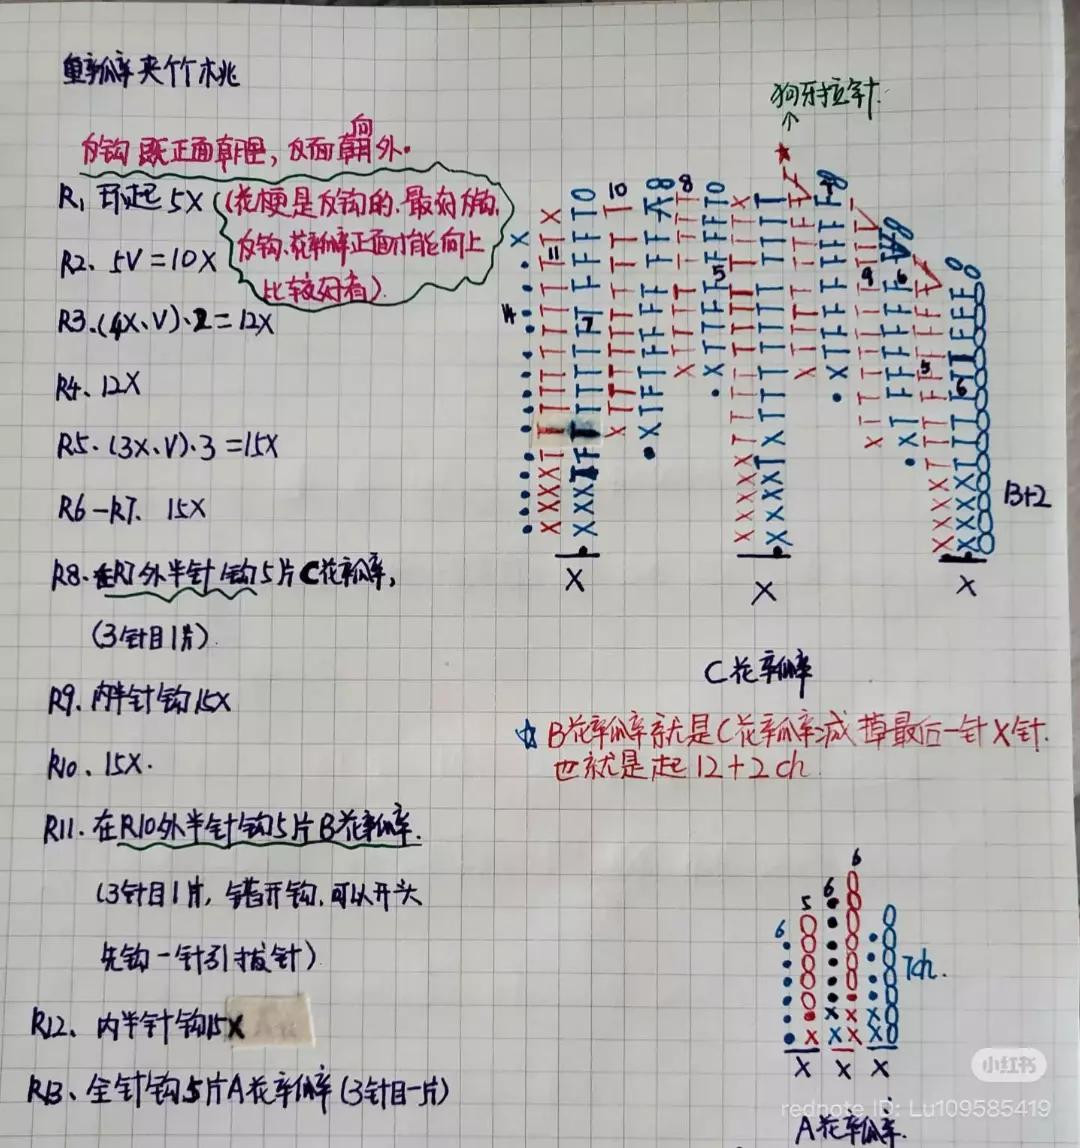 重瓣夹竹桃
反钩 既正面朝里，反面朝向外。
R1 环起 5X
(花梗是反钩的.最好反钩.
反钩.花瓣正面才能向上
比较好看)
R2、5V=10X
R3.(4X、V)·2=12X
R4、12X
R5·(3X、V)·3=15X
R6-R7、15X
R8·在R7外半针钩5片C花瓣,
(3针目1片).
R9、内半针钩15X
R10、15X.
R11·在R10外半针钩5片B花瓣.
(3针目1片, 错开钩.可以开头
先钩一针引拔针)
R12、内半针钩15X
R13、全针钩5片A花瓣(3针目一片)
狗牙拉针.
10
8
11
14
7
5
9
6
5
6
13+2
X X X
C花瓣
☆ B花瓣就是C花瓣减掉最后一针X针.
也就是起12+2ch
6 5 6 6
7ch.
X X X
A花瓣.
小红书
rednote ID: Lu109585419